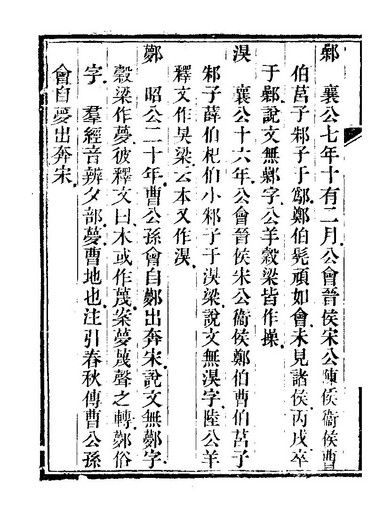 鄵　襄公七年十有二月公會晉侯宋公陳侯衞侯曹
伯莒子邾子于鄬鄭伯髡頑如會未見諸侯丙戌卒
于鄵說文無鄵字公羊穀梁皆作操
湨　襄公十六年公會晉侯宋公衞侯鄭伯曹伯莒子
邾子薛伯杞伯小邾子于湨梁說文無湨字陸公羊
釋文作梁云本又作湨
鄸　昭公二十年曹公孫會自鄸出奔宋說文無鄸字
穀梁作夢彼釋文曰木或作蔑案夢蔑聲之轉鄸俗
字　羣經音辨夕部夢曹地也注引春秋傳曹公孫
會自夢出奔宋